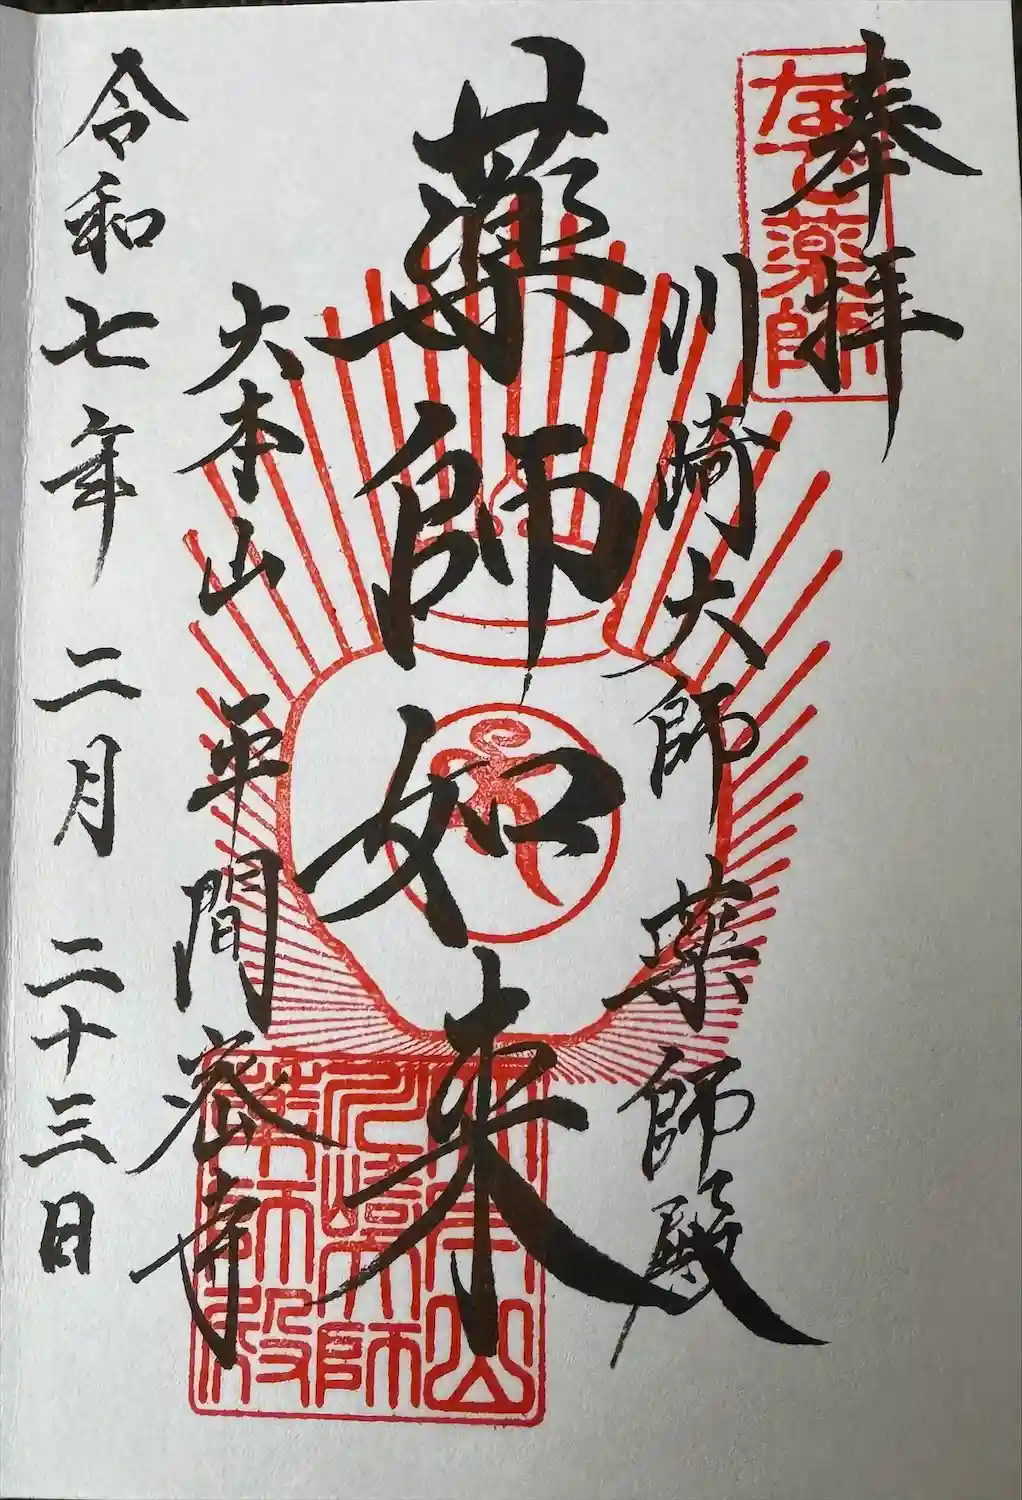 奉拝
なで薬師
川崎大師 薬師殿
薬師如来
大本山 平間密寺
令和七年 二月 二十三日
大本山
川崎大師
薬師殿